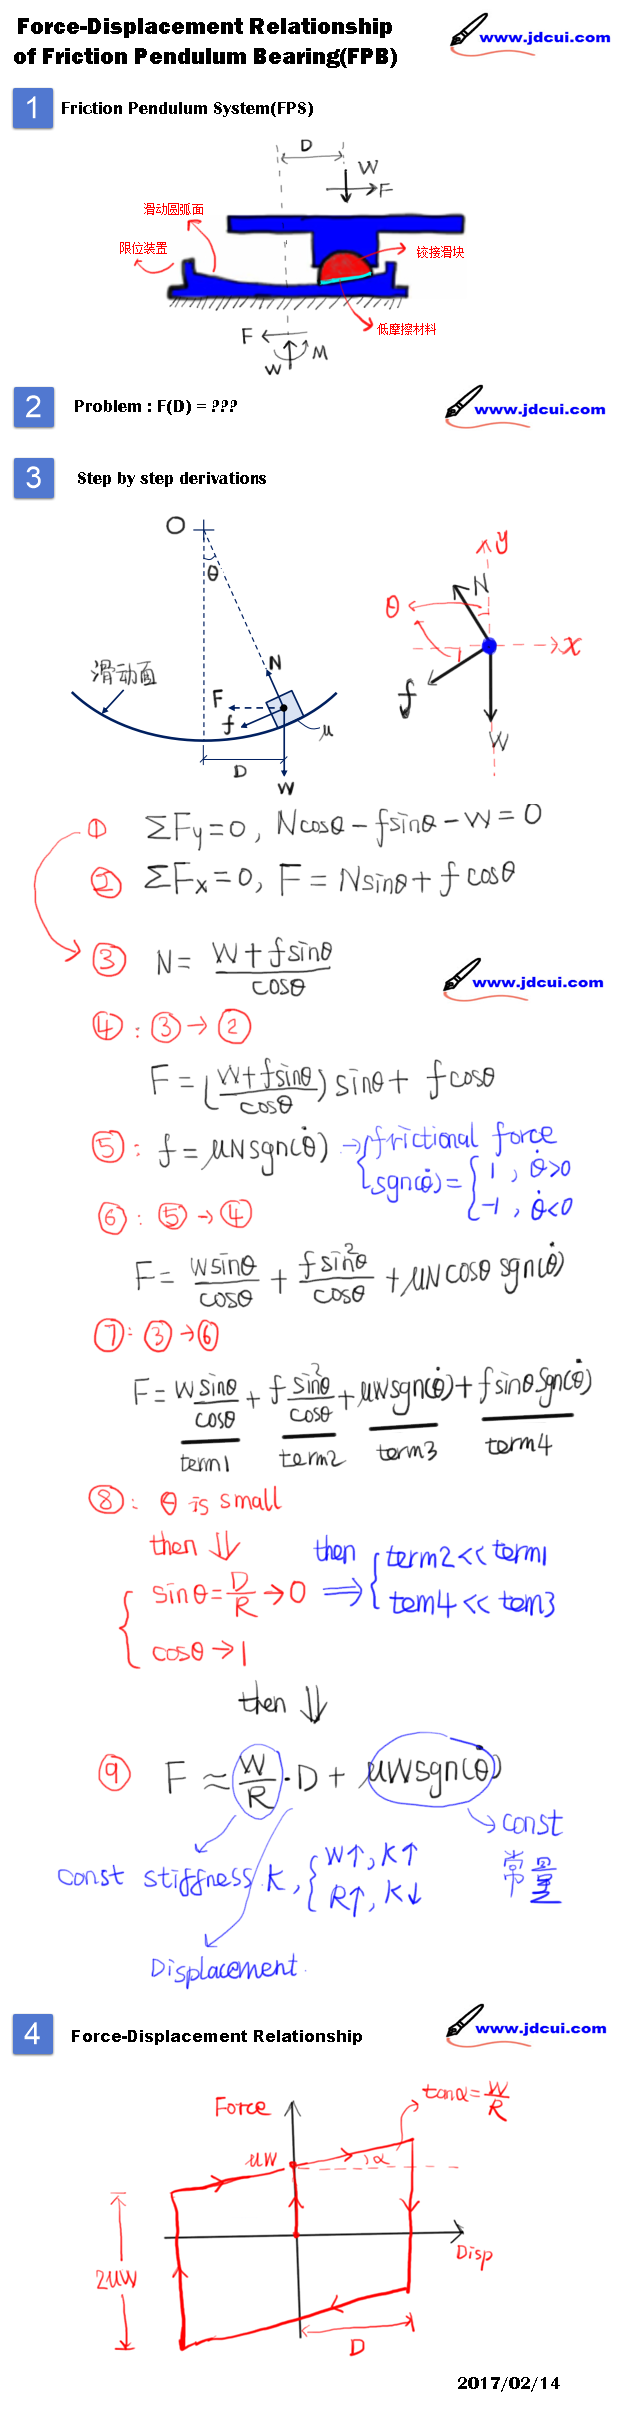 Force-Displacement Relationship
of Friction Pendulum Bearing(FPB)
www.jdcui.com
1 Friction Pendulum System(FPS)
D
W
F
滑动圆弧面
限位装置
铰接滑块
低摩擦材料
F
W
M
2 Problem : F(D) = ???
www.jdcui.com
3 Step by step derivations
O
θ
滑动面
N
F
f
μ
D
W
y
N
θ
x
f
W
① ΣFy=0, Ncosθ-fsinθ-W=0
② ΣFx=0, F=Nsinθ+fcosθ
③ N= (W+fsinθ)/cosθ
www.jdcui.com
④: ③→②
F=((W+fsinθ)/cosθ)sinθ+ fcosθ
⑤: f=μNsgn(θ̇) → {frictional force
sgn(θ̇)={1, θ̇>0
-1, θ̇<0
⑥: ⑤→④
F= Wsinθ/cosθ + fsin²θ/cosθ +μNcosθ sgn(θ̇)
⑦: ③→⑥
F=Wsinθ/cosθ + fsin²θ/cosθ +μWsgn(θ̇)+fsinθsgn(θ̇)
term1 term2 term3 term4
⑧: θ is small
then ⇓ then {term2<<term1
{sinθ=D/R→0 ⇒ {tem4<<tem3
cosθ→1
then ⇓
⑨ F≈W/R·D+μWsgn(θ̇)
const
常量
const stiffness K, {W↑, K↑
R↑, K↓
Displacement.
www.jdcui.com
4 Force-Displacement Relationship
tanα=W/R
Force
μW
α
Disp
2μW
D
2017/02/14